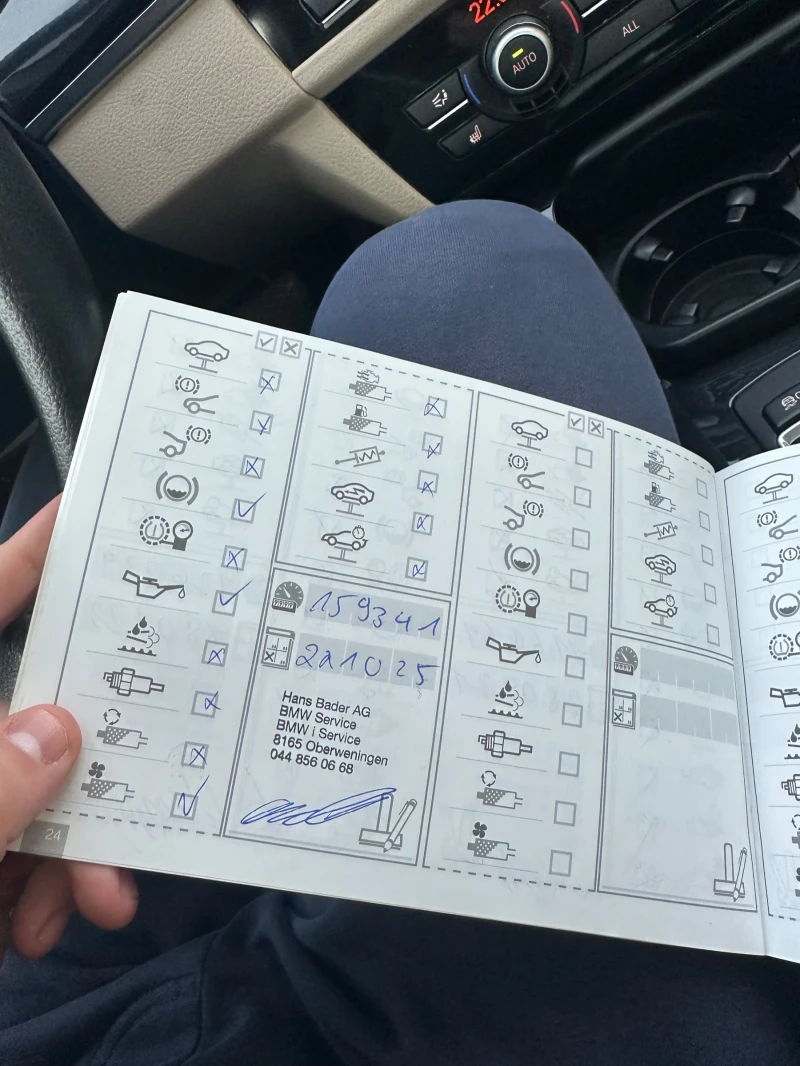 22.
AUTO
ALL
159341
221025
Hans Bader AG
BMW Service
BMW i Service
8165 Oberweningen
044 856 06 68
24